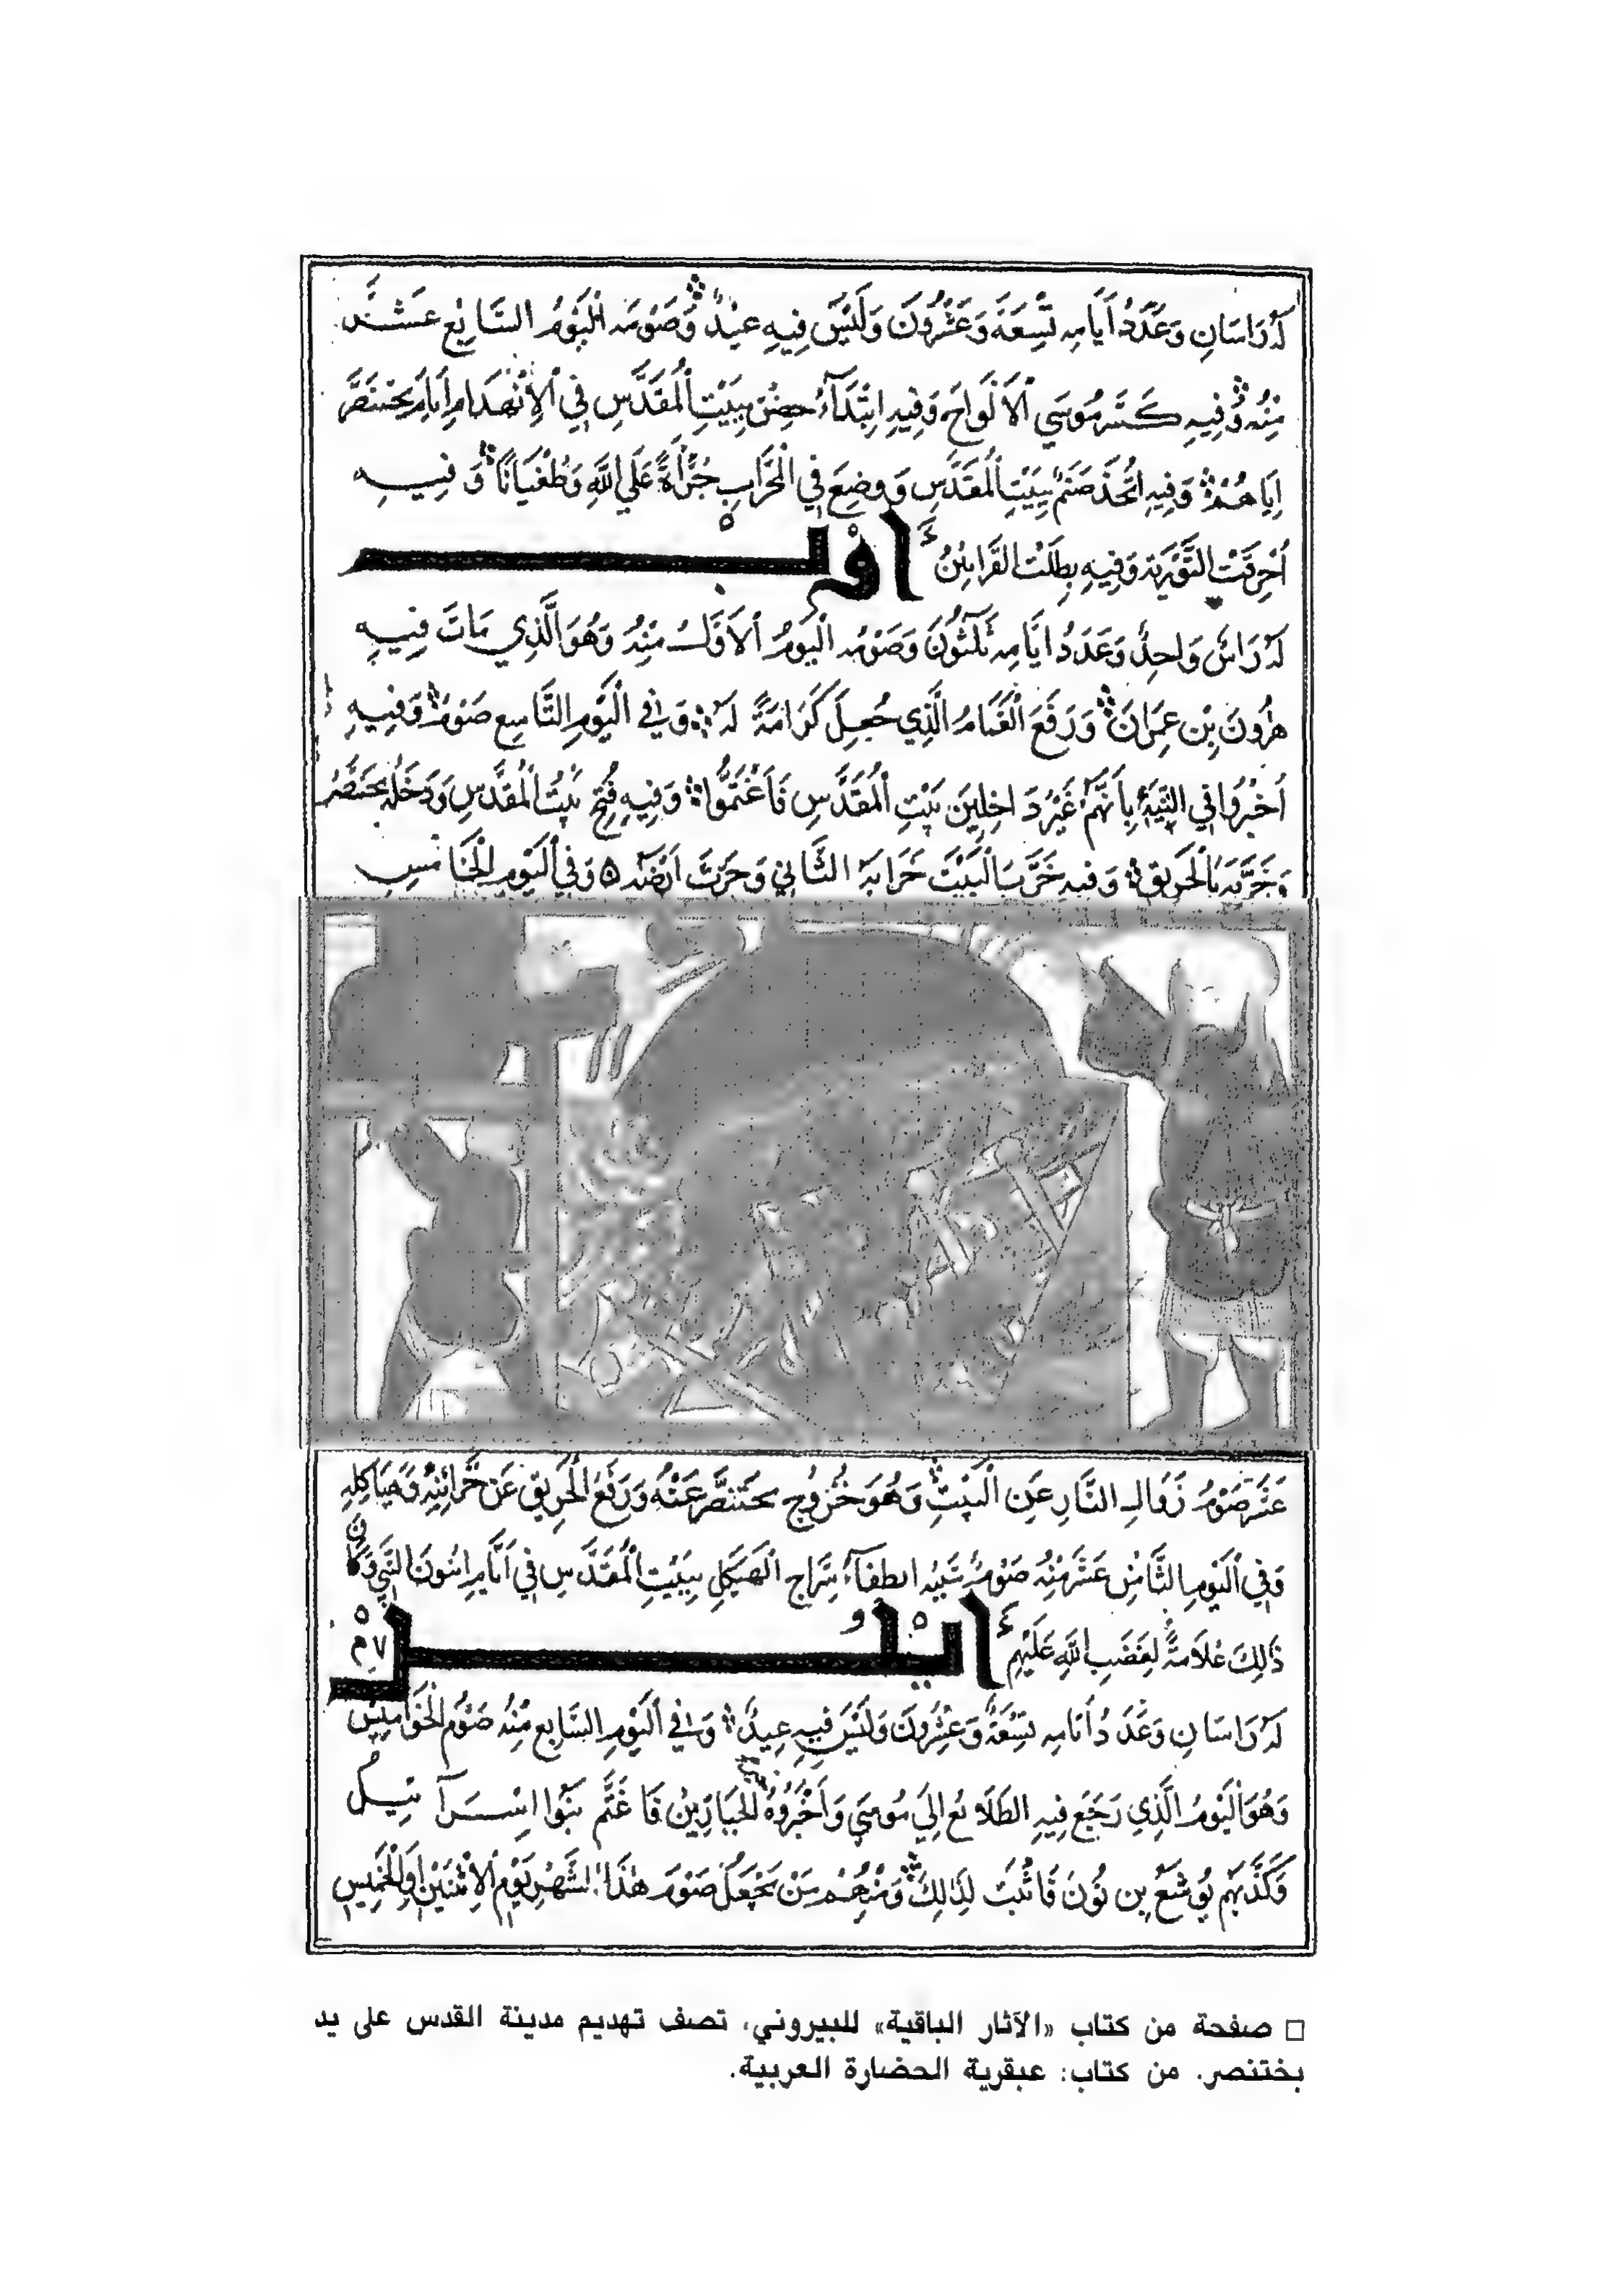 لَهُ رَاسَانِ وَعَدَدُ أَيَامِهِ تِسْعَةَ وَعَشْرُونَ وَلَيْسَ فِيهِ عِيدٌ وَصَوْمُهُ الْيَوْمُ السَّابِعُ عَشَرَ
مِنْهُ وَفِيهِ كَسَّرَ مُوسَي الْأَلْوَاحَ وَفِيهِ ابْتَدَآءُ حِصْنِ بِبَيْتِ الْمُقَدَّسِ فِي الْانْهِدَامِ أَيَامَ بُخْتَنَصَّرَ
اِيَاهُمْ وَفِيهِ اتُّخِذَ صَنَمٌ بِبَيْتِ الْمُقَدَّسِ وَوضِعَ فِي الْمِحْرَابِ جُرْأَةً عَلَي اللَّهِ وَطُغْيَانًا وَفِيهِ
أُحْرِقَتْ التَّوْرَيةُ وَفِيهِ بِطَلَتْ القَرَابِينُ
لَهُ رَاسٌ وَاحِدٌ وَعَدَدُ ايَّامِهِ ثَلٰثُونَ وَصَوْمُهِ الْيَوْمُ الْأَوَّلُ مِنْهُ وَهُوَ الَّذِي مَاتَ فِيهِ
هٰرُونَ بْنِ عِمْرَانَ وَرَفَعَ الْغَمَامُ الَّذِي جُعِلَ كَرَامَةً لَهُ وَفِي الْيَوْمِ التَّاسِعِ صَوْمٌ وَفِيهِ
أُخْبِرُوا فِي التِّيهِ بِأَنَّهُمْ غَيْرُ دَاخِلِينَ بَيْتِ الْمُقَدَّسِ فَاَغْتَمُّوا وَفِيهِ فُتِحَ بَيْتُ الْمُقَدَّسِ وَدَخَلَهُ بُخْتَنَصَّرُ
وَخَرَّبَهُ بِالْحَرِيقِ وَفِيهِ خَرَّبَ الْبَيْتَ خَرَابَهُ الثَّانِي وَحَرَثَ أَرْضَهُ وَفِي الْيَوْمِ الْخَامِسِ
عَشَرَ صَوْمُ زَوَالِ النَّارِ عَنِ الْبَيْتِ وَهُوَ خُرُوجِ بُخْتَنصَّرَ عَنْهُ وَرَفْعُ الْحَرِيقِ عَنْ خَزَائِنِهِ وَهَيَاكِلِهِ
وَفِي الْيَوْمِ الثَّامِنِ عَشَرَ مِنْهُ صَوْمٌ شَبِيهُ انطِفَآءُ سِرَاجِ الْهَيْكَلِ بِبَيْتِ الْمُقَدَّسِ فِي أَيَّامِ النَّبِي وَكَانَ
ذَالِكَ عَلَامَةً لِغَضَبِ اللَّهِ عَلَيْهِمْ اَيْلُـــــــول
لَهُ رَاسَانِ وَعَدَدُ أَيَامِهِ تِسْعَةٌ وَعِشْرُونَ وَلَيْسَ فِيهِ عِيدٌ وَفِي الْيَوْمِ السَّابِعِ مِنْهُ صَوْمُ
وَهُوَ الْيَوْمُ الَّذِي رَجَعَ فِيهِ الطَلَائِعُ إِلَي مُوسَي وَأَخْبَرُوهُ الْجَبَّارِيْنَ فَاغْتَمَّ بَنُوا اِسْرَآئِيلَ
وَكَذَّبَهُمْ يُوشَعُ بِنِ نُونَ فَاثْبَتَ لِذَالِكَ وَمِنْهُمْ مَنْ يَجْعَلُ صَوْمَ هٰذَا الشَّهْرِ يَوْمِ الْاثْنَيْنِ اَوِ الْخَمِيسِ
□ صفحة من كتاب «الآثار الباقية» للبيروني، تصف تهديم مدينة القدس على يد
بختنصر. من كتاب: عبقرية الحضارة العربية.